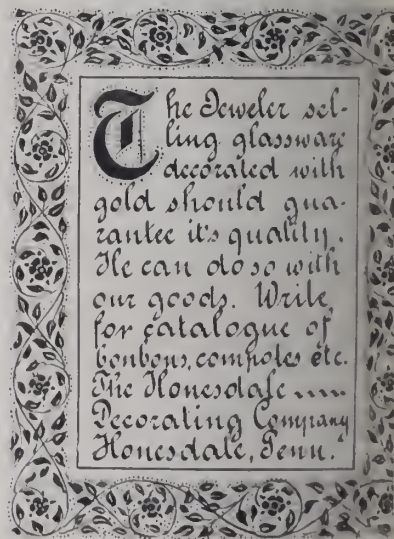 The Jeweler sel-
ling glassware
decorated with
gold should gua-
rantee it's quality.
He can do so with
our goods. Write
for catalogue of
bonbons, compotes etc.
The Honesdale ....
Decorating Company
Honesdale, Penn.